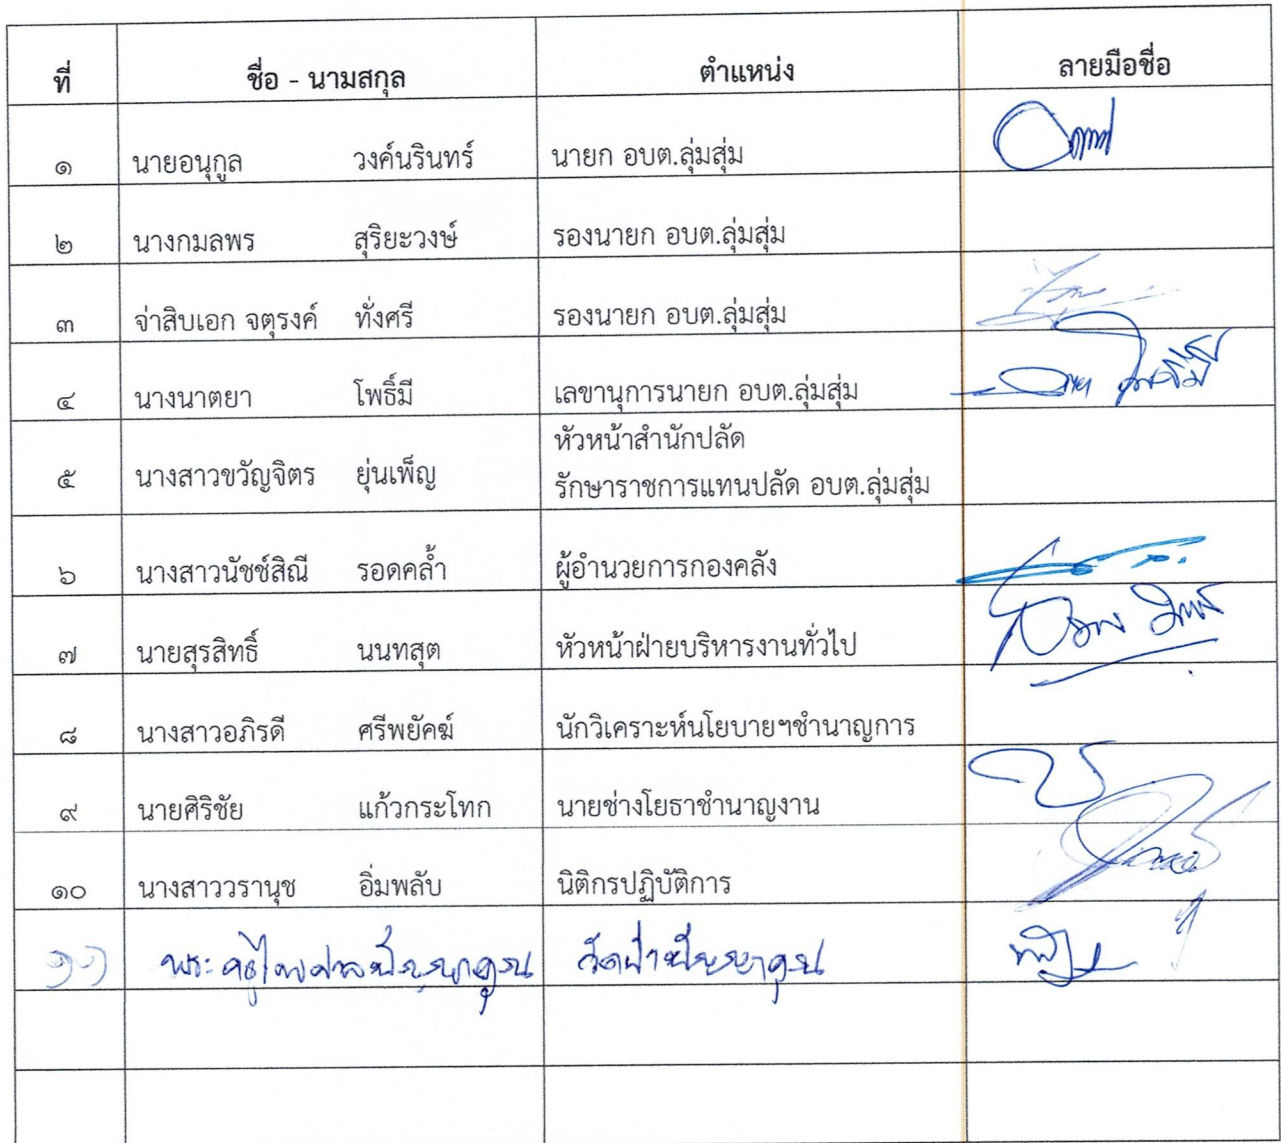 ที่ ชื่อ - นามสกุล ตำแหน่ง ลายมือชื่อ
๑ นายอนุกูล วงค์นรินทร์ นายก อบต.ลุ่มสุ่ม
๒ นางกมลพร สุริยะวงษ์ รองนายก อบต.ลุ่มสุ่ม
๓ จ่าสิบเอก จตุรงค์ ทั่งศรี รองนายก อบต.ลุ่มสุ่ม
๔ นางนาตยา โพธิ์มี เลขานุการนายก อบต.ลุ่มสุ่ม
๕ นางสาวขวัญจิตร ยุ่นเพ็ญ หัวหน้าสำนักปลัด
รักษาราชการแทนปลัด อบต.ลุ่มสุ่ม
๖ นางสาวนัชช์สิณี รอดคล้ำ ผู้อำนวยการกองคลัง
๗ นายสุรสิทธิ์ นนทสุต หัวหน้าฝ่ายบริหารงานทั่วไป
๘ นางสาวอภิรดี ศรีพยัคฆ์ นักวิเคราะห์นโยบายฯชำนาญการ
๙ นายศิริชัย แก้วกระโทก นายช่างโยธาชำนาญงาน
๑๐ นางสาววรานุช อิ่มพลับ นิติกรปฏิบัติการ
๑๑ พระครู